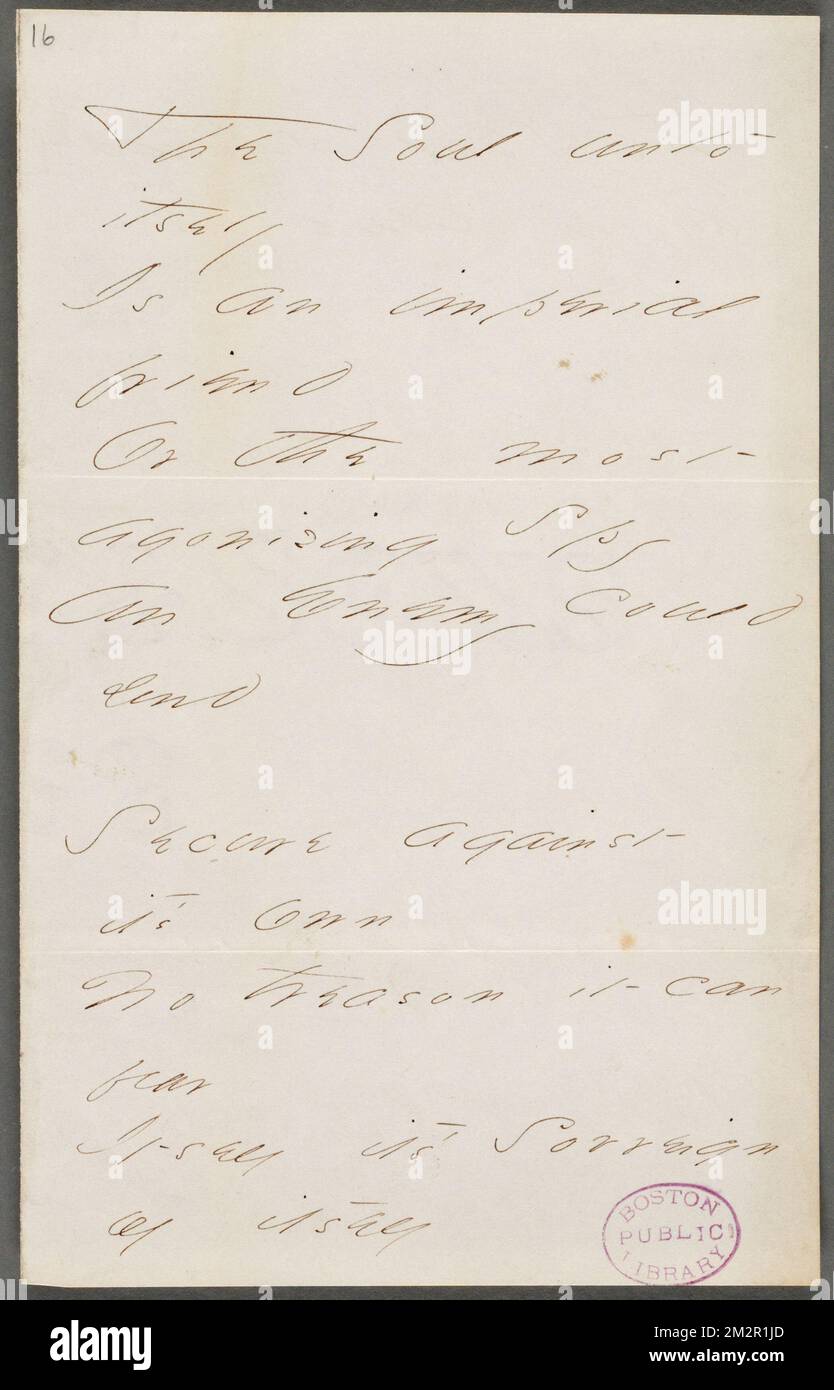 16
The Soul unto
itself
Is an imperial
friend
Or the most
agonizing Spy
An Enemy could
send
Secure against
it's own
No treason it can
fear
Itself it's Sovreign
of itself
BOSTON
PUBLIC
LIBRARY
alamy
Image ID: 2M2R1JD
www.alamy.com